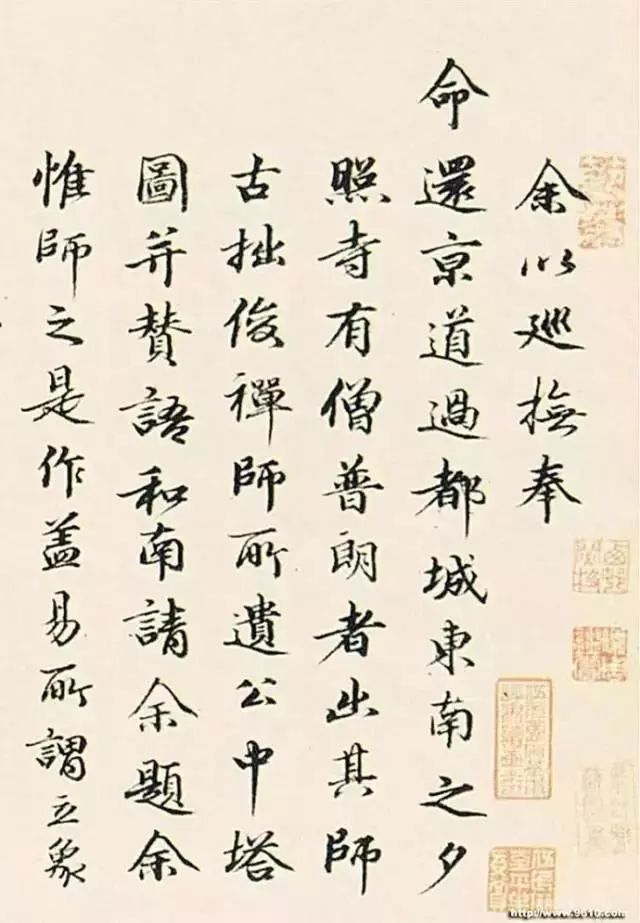 余以巡撫奉
命還京道過都城東南之夕
照寺有僧普朗者出其師
古拙俊禪師所遺公中塔
圖并賛語和南請余題余
惟師之是作盖易所謂立象
http://www.9610.com